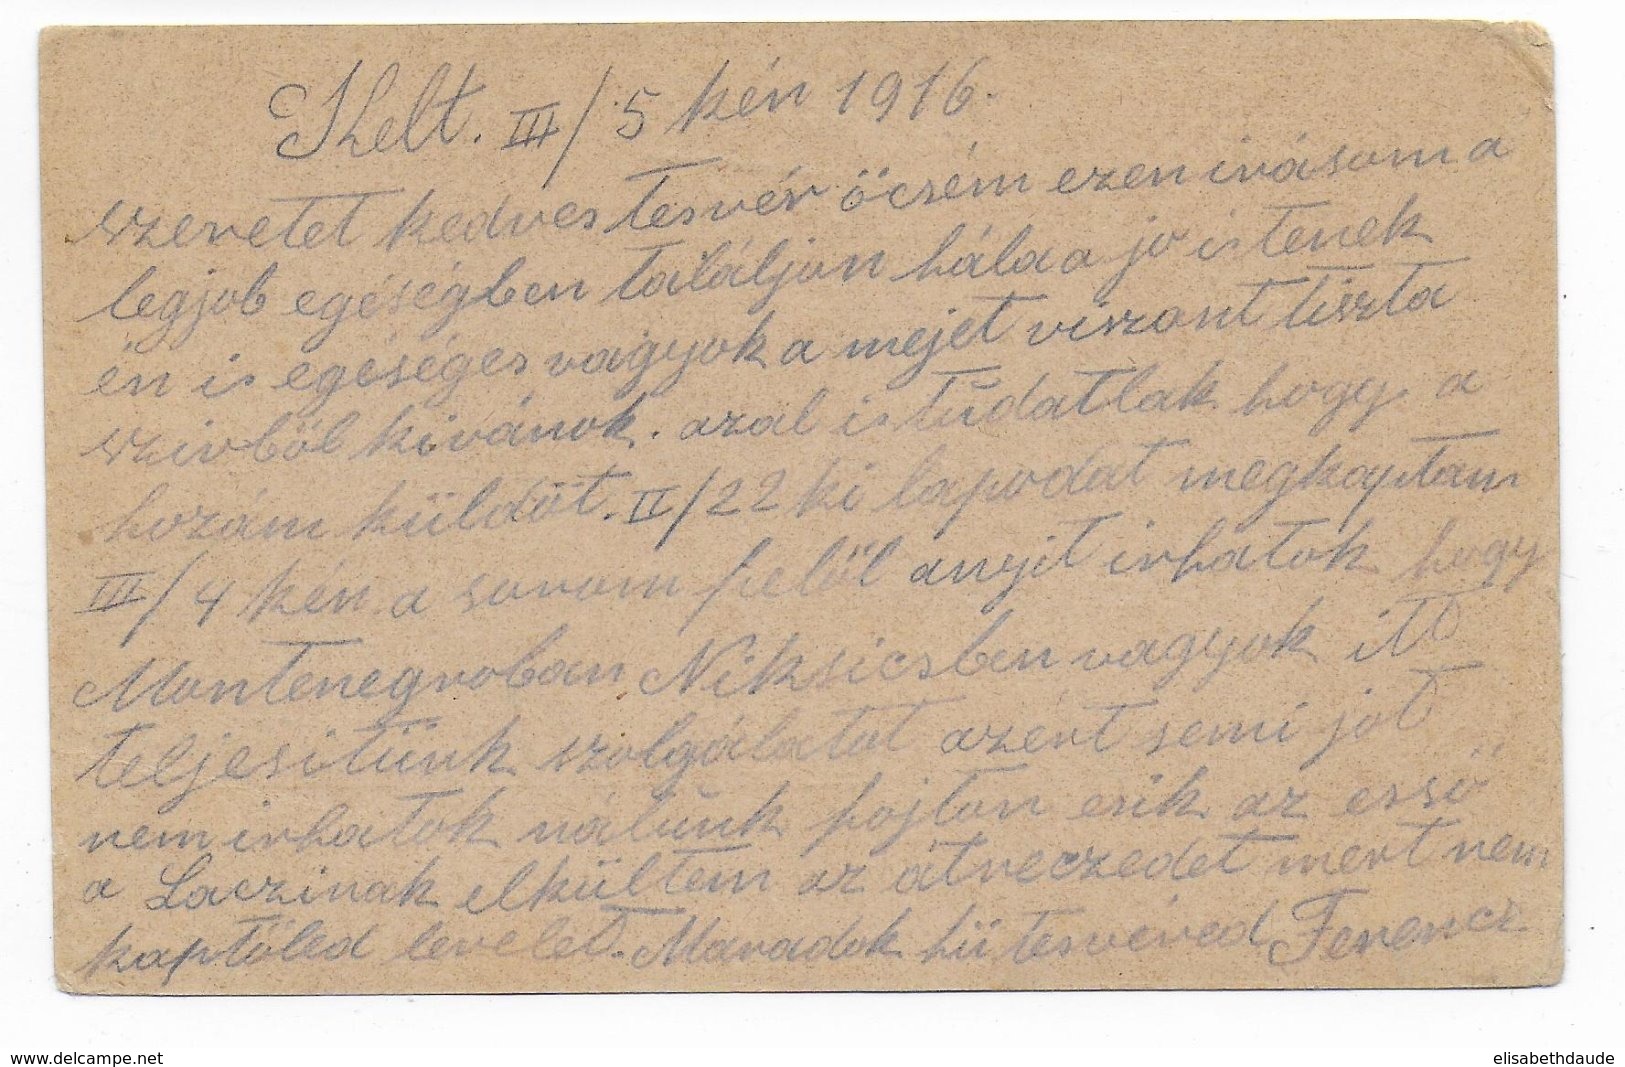 Kelt. III/5 kén 1916.
szeretet kedves tesvér öcsém ezen irásom á
legjob egéségben találjon hála a jo istenek
én is egéséges vagyok a mejet viszont tiszta
szivböl kivánok. azal is tudatlak hogy a
hozám küldöt. II/22 ki lapodat megkaptam
III/4 kén a sorom felöl anyit irhatok hogy
Montenegroban Niksicsben vagyok itt
teljesitünk szolgálatot azért semi jot
nem irhatok nálunk fojton esik az essö
a Laczinak elkültem az átveczedet mert nem
kaptöled levelet. Maradok hü tesvéred Ferencz
www.delcampe.net
elisabethdaude